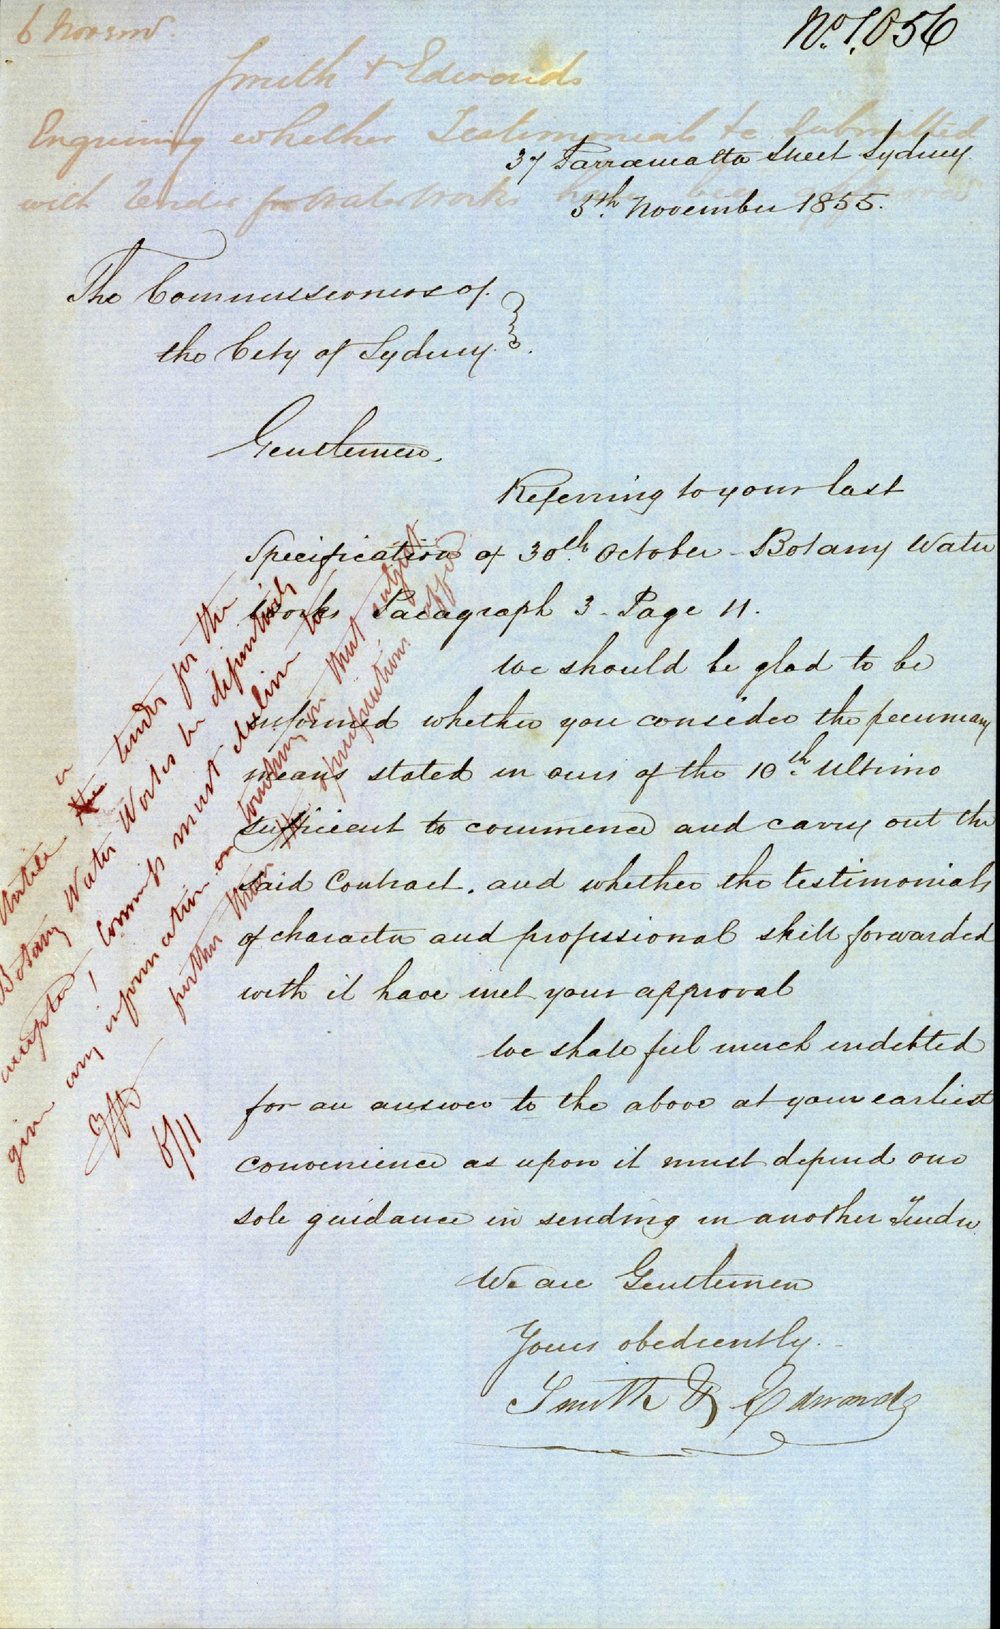 6 Novemr.
No. 1,056
Smith & Edwards
Enquiring whether Testimonials to be submitted
with Tender for Water Works have been approved
37 Parramatta Street Sydney.
5th November 1855.
The Commissioners of
the City of Sydney.
Gentlemen,
Referring to your last
Specification of 30th October - Botany Water
Works Paragraph 3 - Page 11.
We should be glad to be
informed whether you consider the pecuniary
means stated in ours of the 10th Ultimo
sufficient to commence and carry out the
said Contract, and whether the testimonials
of character and professional skill forwarded
with it have met your approval
We shall feel much indebted
for an answer to the above at your earliest
convenience as upon it must depend our
sole guidance in sending in another Tender
We are Gentlemen
Yours obediently.
Smith & Edwards
Until a the tender for the
Botany Water Works be definitively
accepted, Commrs must decline to
give any information on touching on that subject
further than the specifications afford
6/11